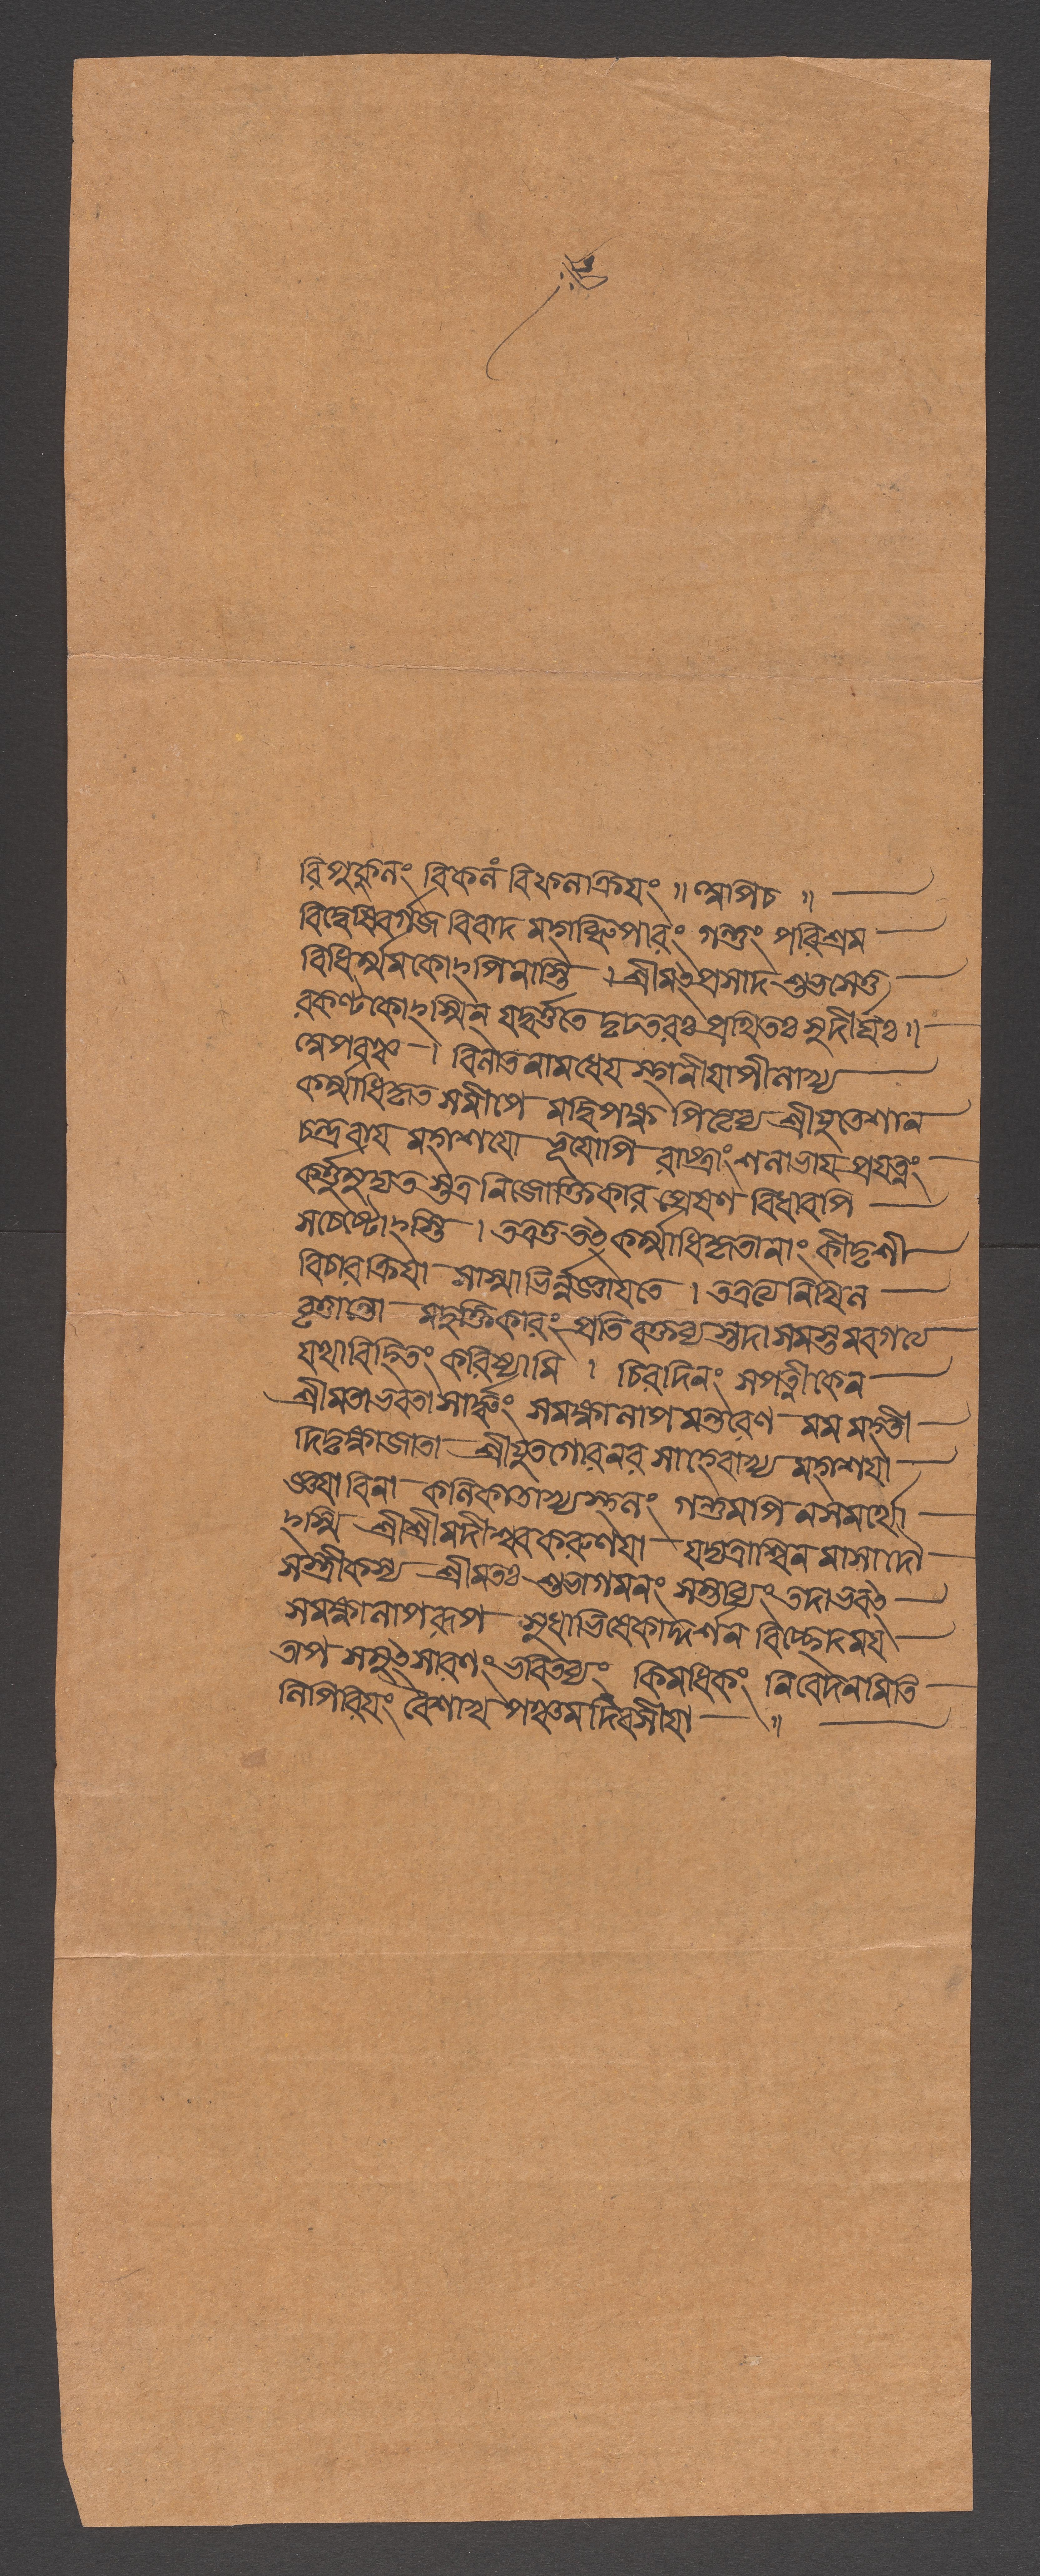 রিপুকুলং বিকলং বিফলক্রিয়ং ॥ শ্লোপিচ ॥
বিদ্বেষিবর্গজ বিবাদ মহাব্ধিপারং গন্তুং পরিশ্রম
বিধির্ম্মমকোঽপিনাস্তি । শ্রীমৎপ্রসাদ শুভসেতু
রকণ্টকোঽস্মিন্ যদ্বর্ত্ততে দৃঢতরঃ প্রথিতঃ সুদীর্ঘঃ ॥
বিলাত নামধেয় স্থানীয়াপীলাখ্য
কর্ম্মাধিকৃত সমীপে মদ্বিপক্ষ শ্রীযুতেশান
চন্দ্ররায় মহাশয়ো ভূয়োপি রাজ্যাংশলাভায় প্রযত্নং
কর্ত্তুমুদ্যত স্তত্র নিজোক্তিকার প্রেষণ বিধাবপি
সচেষ্টোঽস্তি । তত্রতৎ কর্ম্মাধিকৃতানাং কীদৃশী
বিচারক্রিয়া সাস্মাভির্ন্নজ্ঞায়তে । তত্রত্যেনিখিল
বৃত্তান্তো মদুক্তিকারং প্রতি বক্তব্য স্তদা সমস্তমবগত্য
যথাবিহিতং করিষ্যামি । চিরদিনং সপত্নীকেন
শ্রীমতাভবতা সার্দ্ধং সমক্ষালাপমন্তরেণ মম মহতী
দিদৃক্ষাজাতা শ্রীযুতগোরনর সাহেবাখ্য মহাশয়া
জ্ঞয়া বিনা কলিকাতাখ্যস্থলং গন্তুমপি নসমর্থো
ঽস্মি শ্রীশ্রীমদীশ্বরকরুণয়া যদ্যত্রাশ্বিন মাসাদৌ
সস্ত্রীকস্য শ্রীমতঃ শুভাগমনং সম্ভাব্যং তদাভবৎ
সমক্ষালাপরূপ সুধাভিষেকাদ্দর্শন বিচ্ছেদময়
তাপ সমুৎসারণং ভবিতব্যং কিমধিকং নিবেদনমিতি
লিপিরিয়ং বৈশাখ পঞ্চম দিবসীয়া ॥